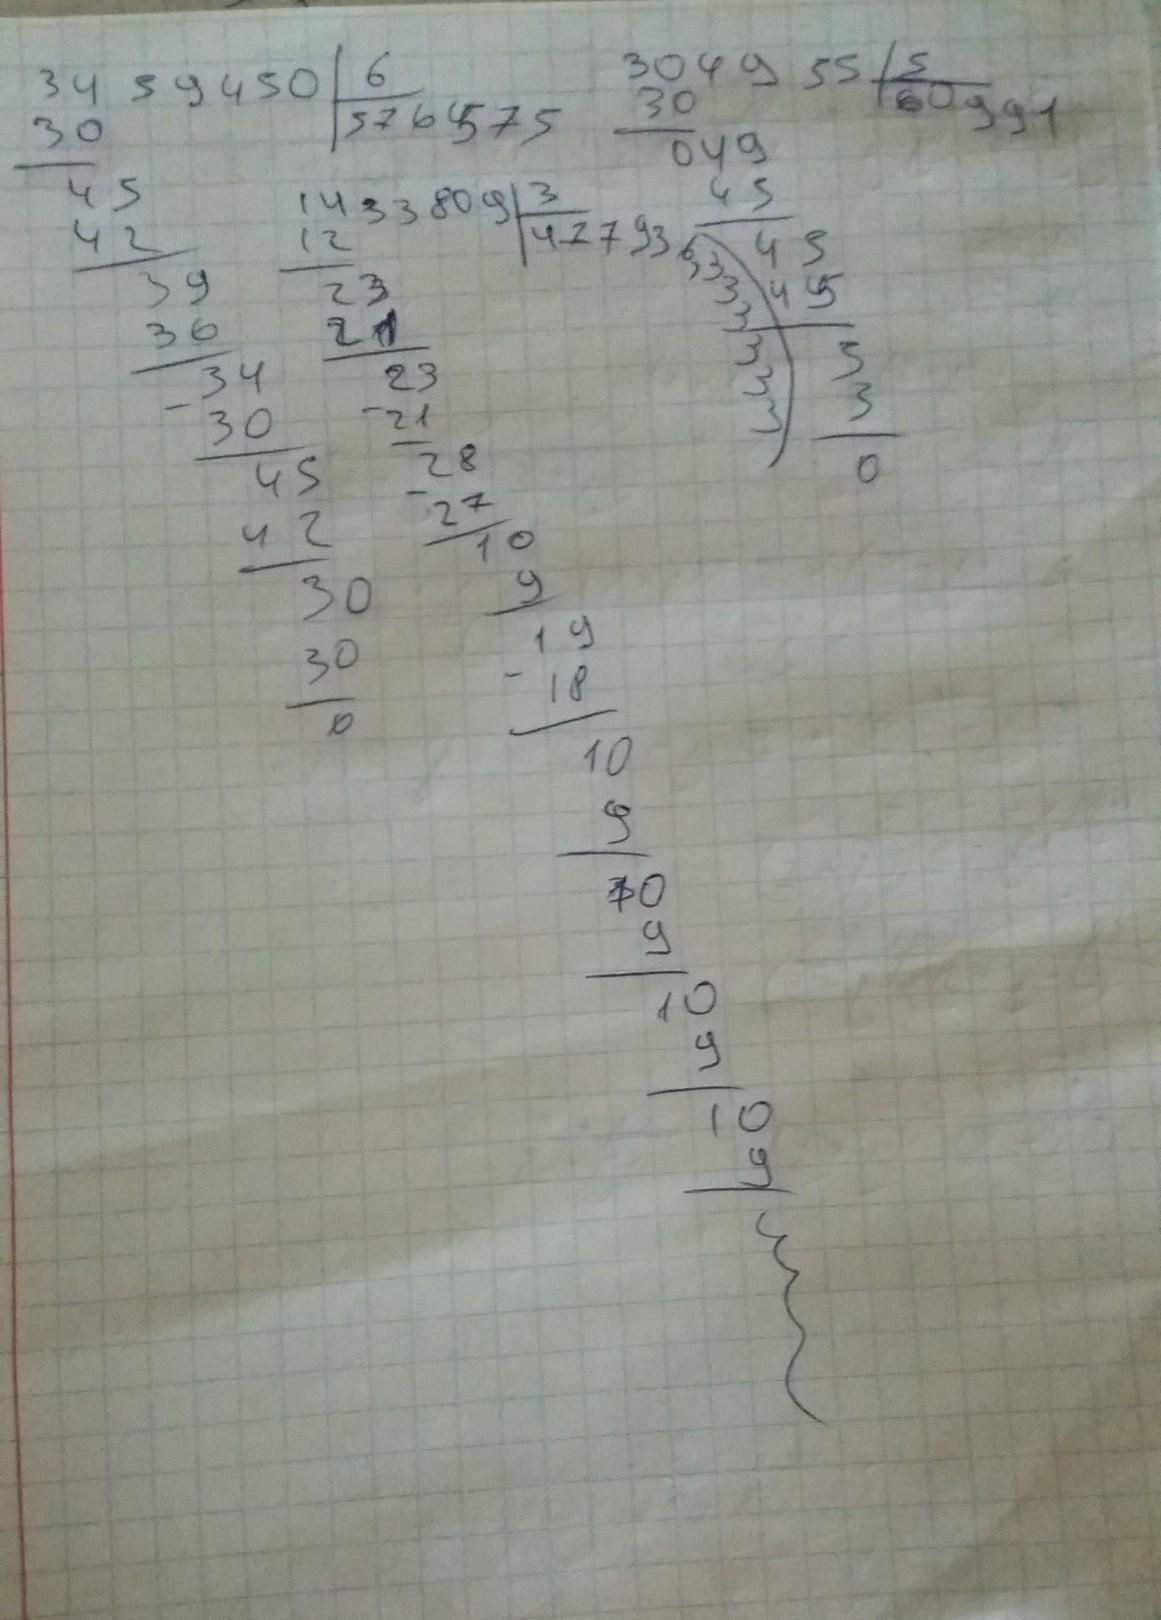 3459450 | 6
30 | 576575
45
42
39
36
34
30
45
42
30
30
0
1433809 | 3
12 | 477936333333
23
21
23
-21
28
-27
10
9
19
-18
10
9
10
9
10
9
10
9
304955 | 5
30 | 60991
049
45
45
45
5
5
0